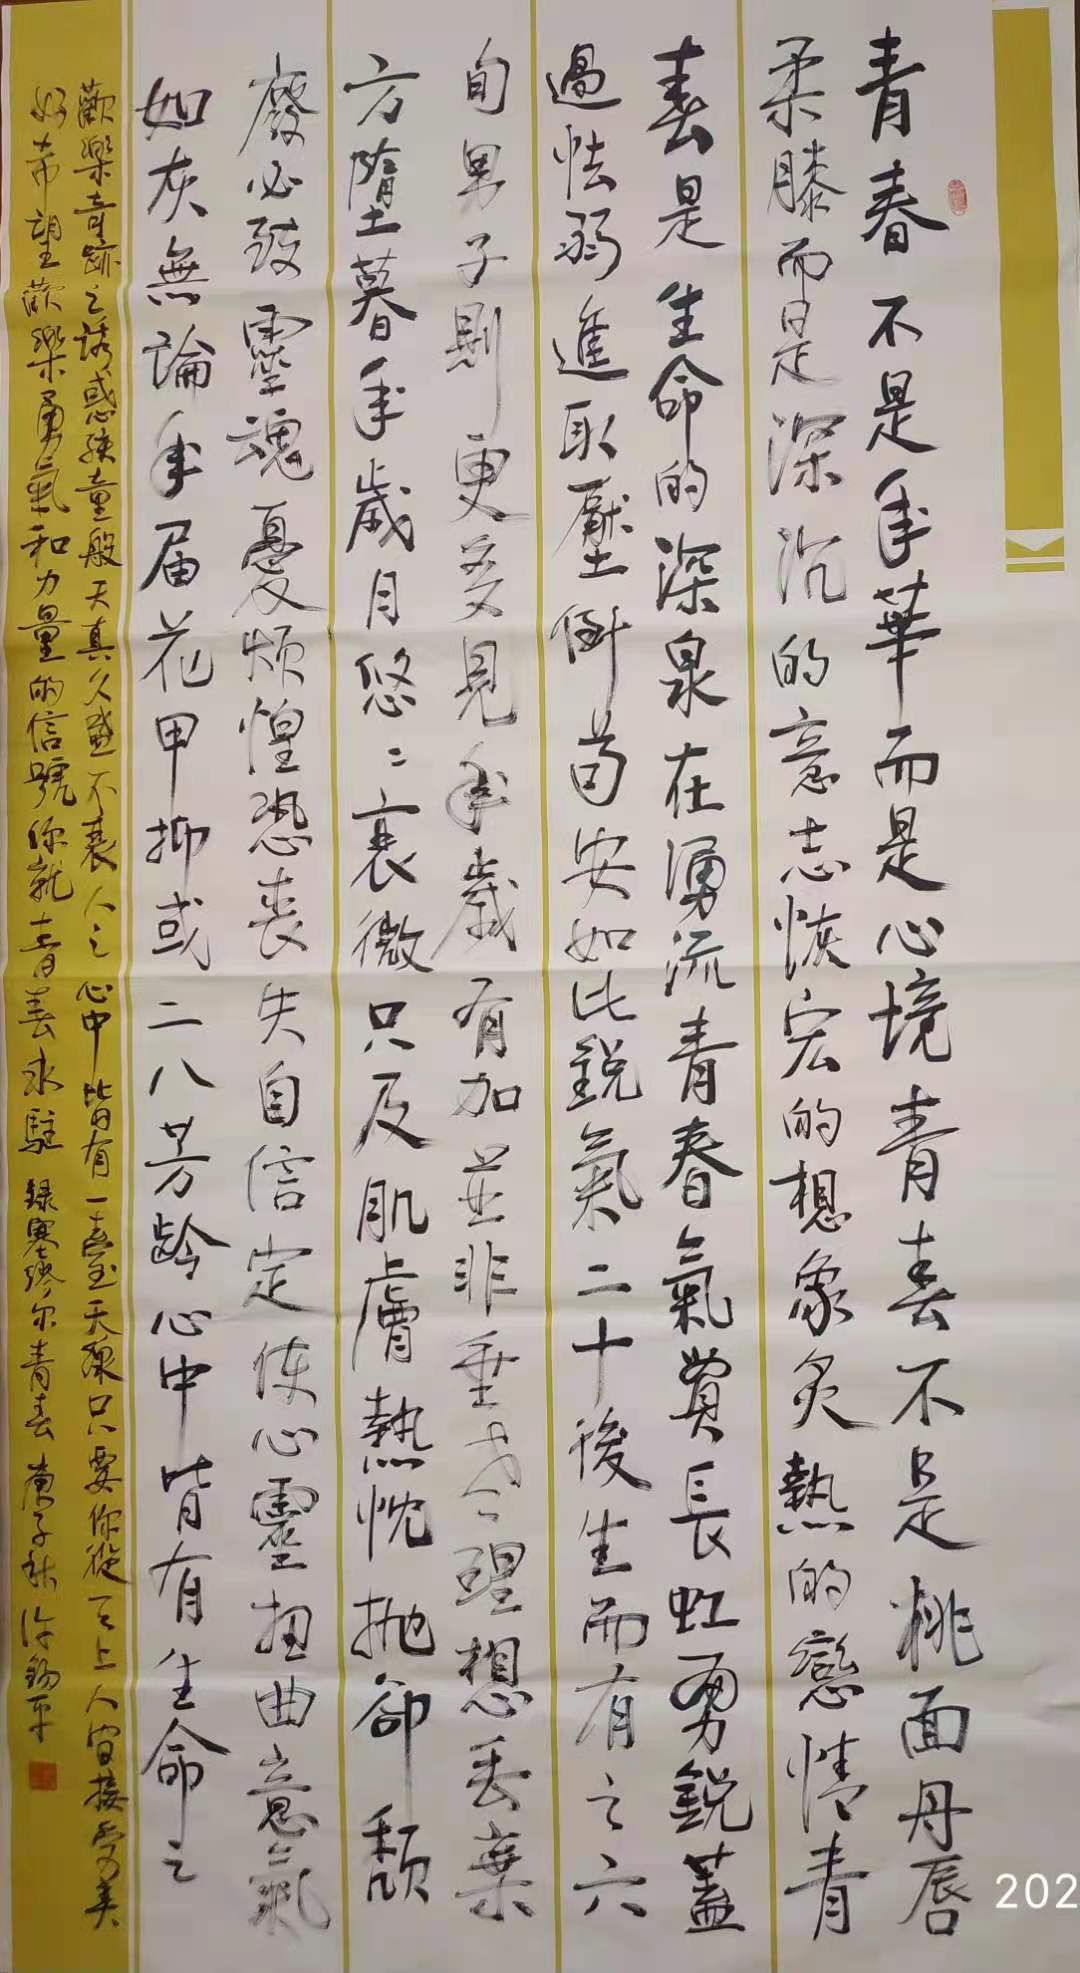 青春不是年華而是心境青春不是桃面丹唇
柔膝而是深沉的意志恢宏的想象炙熱的戀情青
春是生命的深泉在湧流青春氣貫長虹勇銳蓋
過怯弱進取壓倒苟安如此銳氣二十後生而有之六
旬男子則更多見年歲有加並非垂老理想丟棄
方墮暮年歲月悠〻衰微只及肌膚熱忱拋卻頹
廢必致靈魂憂煩惶恐喪失自信定使心靈扭曲意氣
如灰無論年屆花甲抑或二八芳齡心中皆有生命之
歡樂奇跡之誘惑孩童般天真久盛不衰人之心中皆有一臺天線只要你從天上人間接受美
好希望歡樂勇氣和力量的信號你就青春永駐 錄塞繆尔青春 庚子秋 許錫平
202